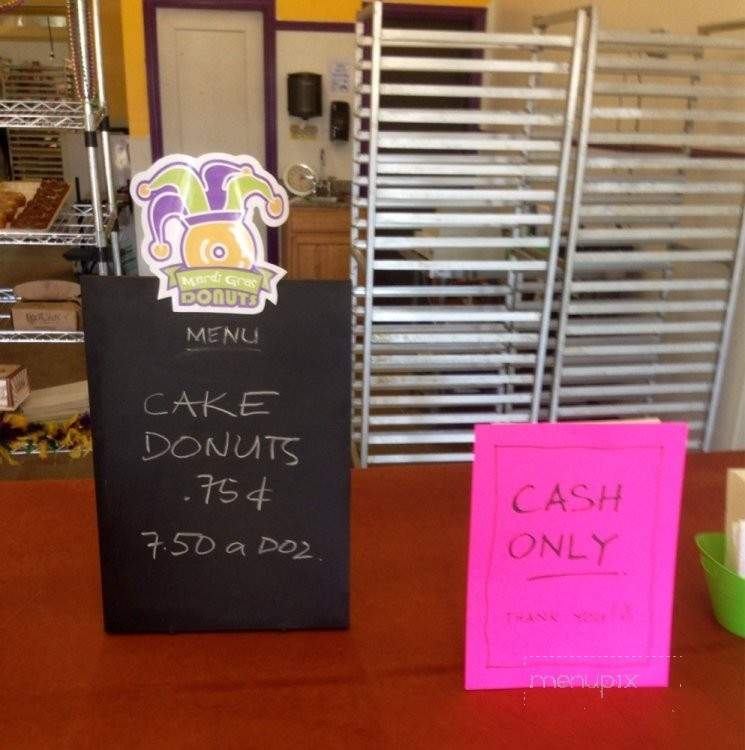 Mardi Gras
DONUTS
MENU
CAKE
DONUTS
.75¢
7.50 a DOZ.
CASH
ONLY
THANK YOU!
menupix